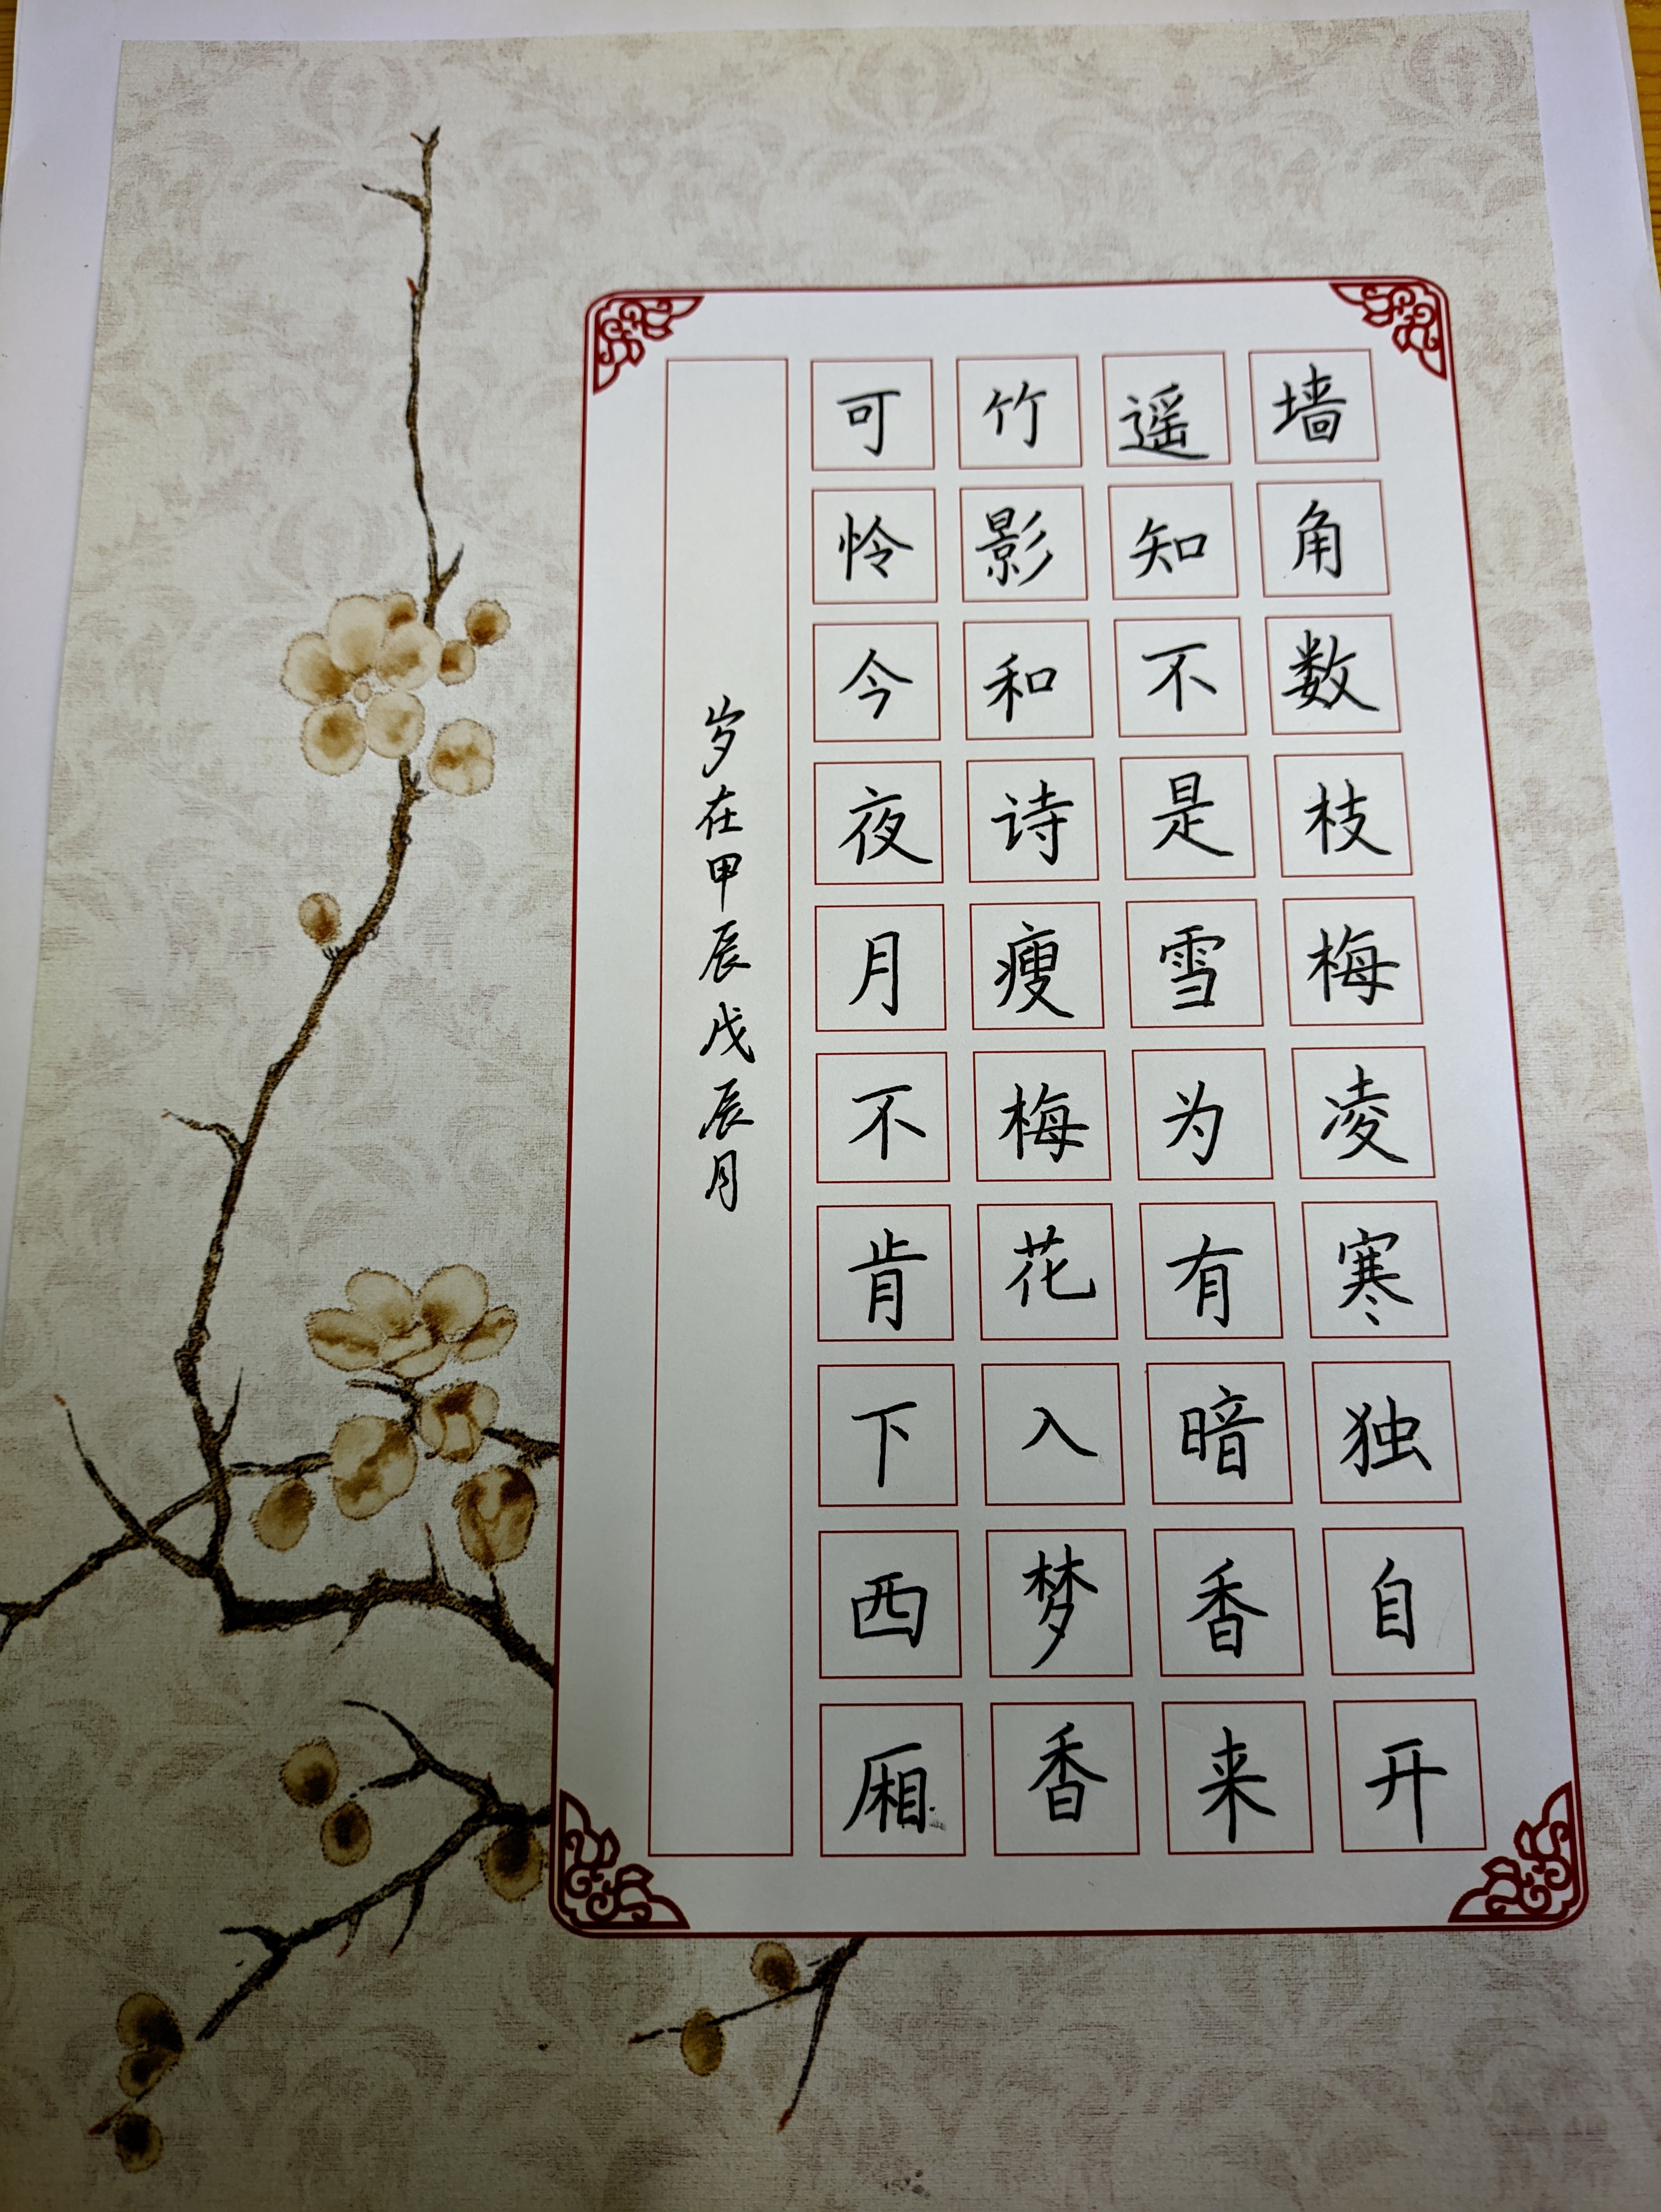 墙角数枝梅凌寒独自开
遥知不是雪为有暗香来
竹影和诗瘦梅花入梦香
可怜今夜月不肯下西厢
岁在甲辰戊辰月